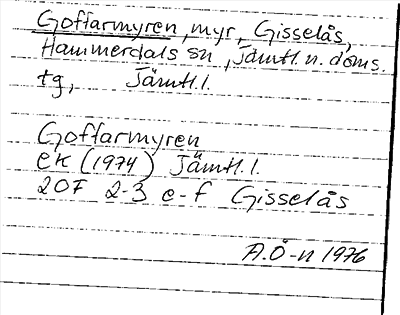 Goffarmyren, myr, Gisselås,
Hammerdals sn, Jämtl. n. doms.
tg, Jämtl.l.
Goffarmyren
ek (1974) Jämtl.l.
20F 2-3 e-f Gisselås
A.Ö-n 1976